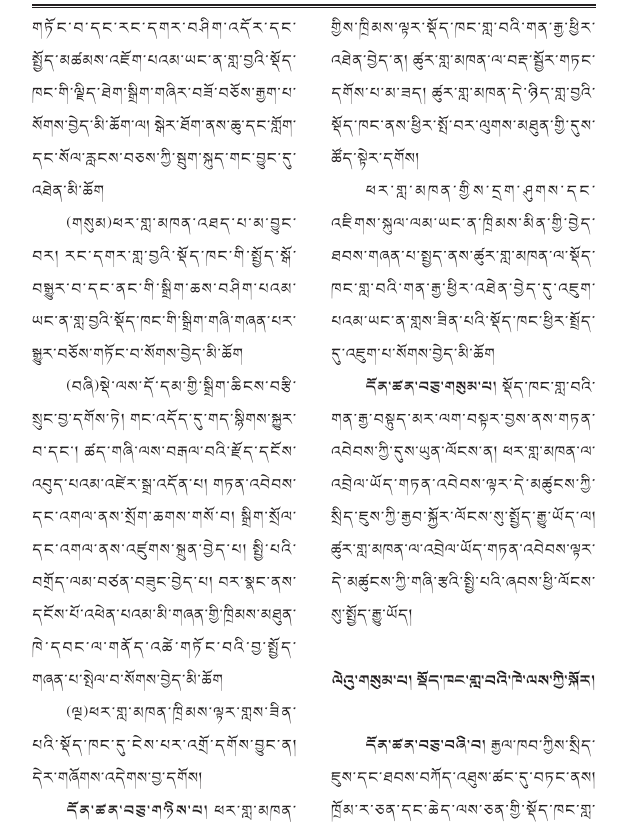 གཏོང་བ་དང་རང་དགར་བཤིག་འདོར་དང་
སྤྱོད་མཚམས་འཇོག་པའམ་ཡང་ན་གླ་བྱའི་སྡོད་
ཁང་གི་ལྗིད་ཐེག་སྒྲིག་གཞིར་བཟོ་བཅོས་རྒྱག་པ་
སོགས་བྱེད་མི་ཆོག་ལ། སྒེར་ཐོག་ནས་ཆུ་དང་གློག་
དང་སོལ་རླངས་བཅས་ཀྱི་སྦུག་སྐུད་གང་བྱུང་དུ་
འཐེན་མི་ཆོག
(གསུམ)ཕར་གླ་མཁན་འཐད་པ་མ་བྱུང་
བར། རང་དགར་གླ་བྱའི་སྡོད་ཁང་གི་སྤྱོད་སྒོ་
བསྒྱུར་བ་དང་ནང་གི་སྒྲིག་ཆས་བཤིག་པའམ་
ཡང་ན་གླ་བྱའི་སྡོད་ཁང་གི་སྒྲིག་གཞི་གཞན་པར་
སྒྱུར་བཅོས་གཏོང་བ་སོགས་བྱེད་མི་ཆོག
(བཞི)སྡེ་ལས་དོ་དམ་གྱི་སྒྲིག་ཆིངས་བརྩི་
སྲུང་བྱ་དགོས་ཏེ། གང་འདོད་དུ་གད་སྙིགས་སྐྱུར་
བ་དང་། ཚད་གཞི་ལས་བརྒལ་བའི་རྫོད་དངོས་
འབུད་པའམ་འཛེར་སྒྲ་འདོན་པ། གཏན་འབེབས་
དང་འགལ་ནས་སྲོག་ཆགས་གསོ་བ། སྒྲིག་སྲོལ་
དང་འགལ་ནས་འཛུགས་སྐྲུན་བྱེད་པ། སྤྱི་པའི་
བགྲོད་ལམ་བཙན་བཟུང་བྱེད་པ། བར་སྣང་ནས་
དངོས་པོ་འཕེན་པའམ་མི་གཞན་གྱི་ཁྲིམས་མཐུན་
ཁེ་དབང་ལ་གནོད་འཚེ་གཏོང་བའི་བྱ་སྤྱོད་
གཞན་པ་སྤེལ་བ་སོགས་བྱེད་མི་ཆོག
(ལྔ)ཕར་གླ་མཁན་ཁྲིམས་ལྟར་གླས་ཟིན་
པའི་སྡོད་ཁང་དུ་ངེས་པར་འགྲོ་དགོས་བྱུང་ན།
དེར་གཞོགས་འདེགས་བྱ་དགོས།
དོན་ཚན་བཅུ་གཉིས་པ། ཕར་གླ་མཁན་
གྱིས་ཁྲིམས་ལྟར་སྡོད་ཁང་གླ་བའི་གན་རྒྱ་ཕྱིར་
འཐེན་བྱེད་ན། ཚུར་གླ་མཁན་ལ་བརྡ་སྦྱོར་གཏང་
དགོས་པ་མ་ཟད། ཚུར་གླ་མཁན་དེ་ཉིད་གླ་བྱའི་
སྡོད་ཁང་ནས་ཕྱིར་སྤོ་བར་ལུགས་མཐུན་གྱི་དུས་
ཚོད་སྟེར་དགོས།
ཕར་གླ་མཁན་གྱིས་དྲག་ཤུགས་དང་
འཇིགས་སྐུལ་ལམ་ཡང་ན་ཁྲིམས་མིན་གྱི་བྱེད་
ཐབས་གཞན་པ་སྤྱད་ནས་ཚུར་གླ་མཁན་ལ་སྡོད་
ཁང་གླ་བའི་གན་རྒྱ་ཕྱིར་འཐེན་བྱེད་དུ་འཇུག་
པའམ་ཡང་ན་གླས་ཟིན་པའི་སྡོད་ཁང་ཕྱིར་སྤྲོད་
དུ་འཇུག་པ་སོགས་བྱེད་མི་ཆོག
དོན་ཚན་བཅུ་གསུམ་པ། སྡོད་ཁང་གླ་བའི་
གན་རྒྱ་བསྟུད་མར་ལག་བསྟར་བྱས་ནས་གཏན་
འབེབས་ཀྱི་དུས་ཡུན་ལོངས་ན། ཕར་གླ་མཁན་ལ་
འབྲེལ་ཡོད་གཏན་འབེབས་ལྟར་དེ་མཚུངས་ཀྱི་
སྲིད་ཇུས་ཀྱི་རྒྱབ་སྐྱོར་ལོངས་སུ་སྤྱོད་རྒྱུ་ཡོད་ལ།
ཚུར་གླ་མཁན་ལ་འབྲེལ་ཡོད་གཏན་འབེབས་ལྟར་
དེ་མཚུངས་ཀྱི་གཞི་རྩའི་སྤྱི་པའི་ཞབས་ཕྱི་ལོངས་
སུ་སྤྱོད་རྒྱུ་ཡོད།
ལེའུ་གསུམ་པ། སྡོད་ཁང་གླ་བའི་ཁེ་ལས་ཀྱི་སྐོར།
དོན་ཚན་བཅུ་བཞི་བ། རྒྱལ་ཁབ་ཀྱིས་སྲིད་
ཇུས་དང་ཐབས་བཀོད་འཐུས་ཚང་དུ་བཏང་ནས།
ཁྲོམ་ར་ཅན་དང་ཆེད་ལས་ཅན་གྱི་སྡོད་ཁང་གླ་